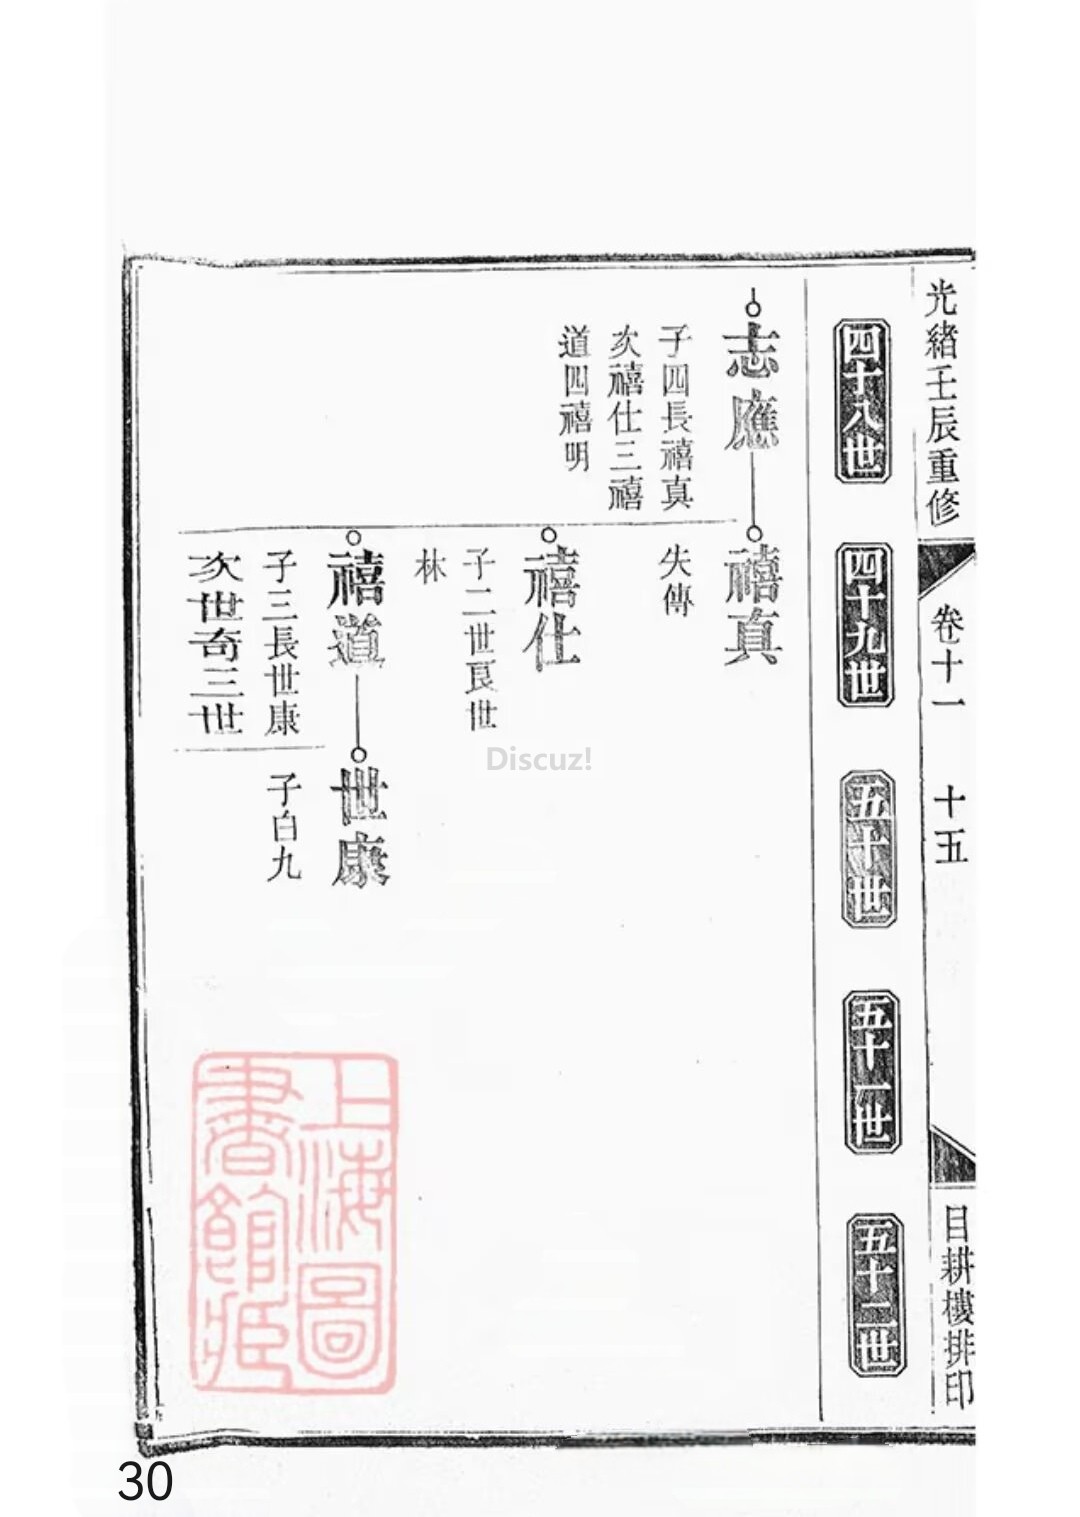 光緒壬辰重修
卷十一
十五
目耕樓排印
四十八世
四十九世
五十世
五十一世
五十二世
志應
子四長禧真
次禧仕三禧
道四禧明
禧真
失傳
禧仕
子二世良世
林
禧道
子三長世康
次世奇三世
世康
子白九
上海圖
書館藏
Discuz!
30